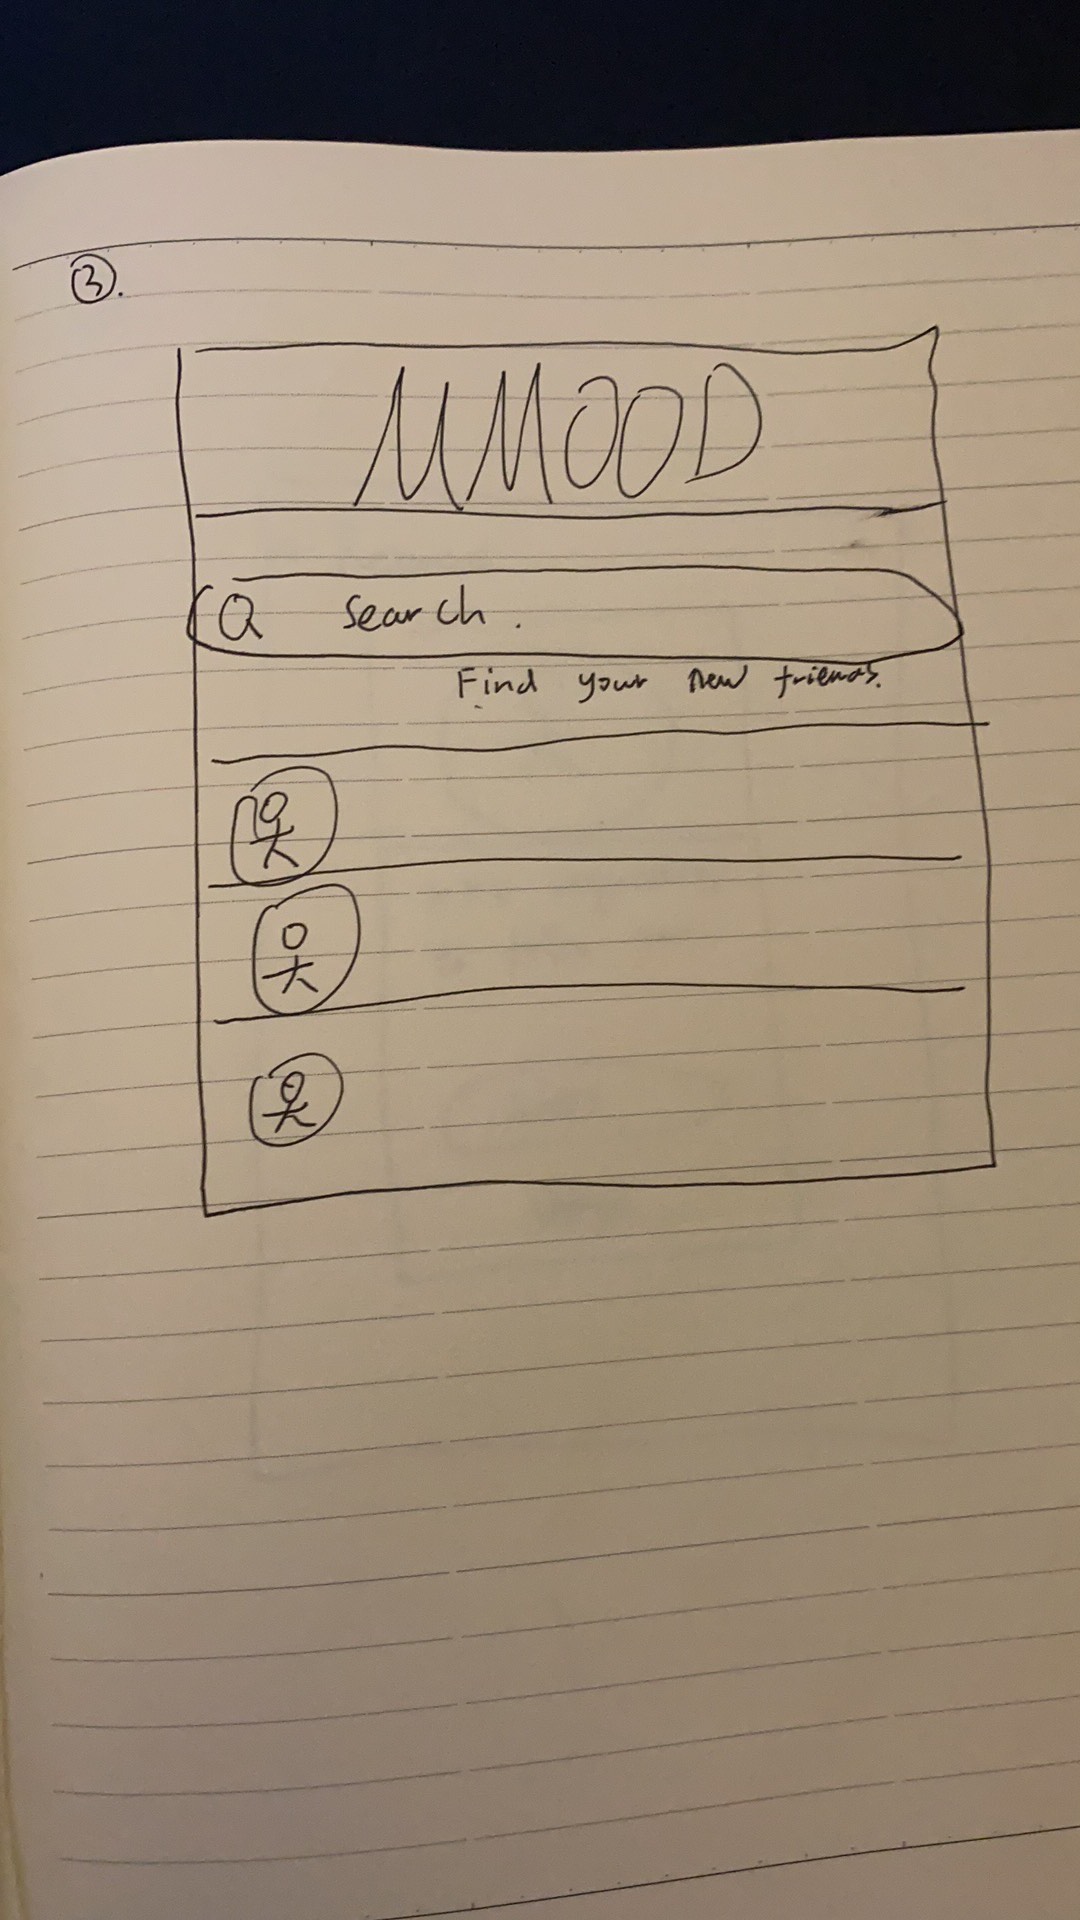 ③.
MMOOD
Q search.
Find your new friends.